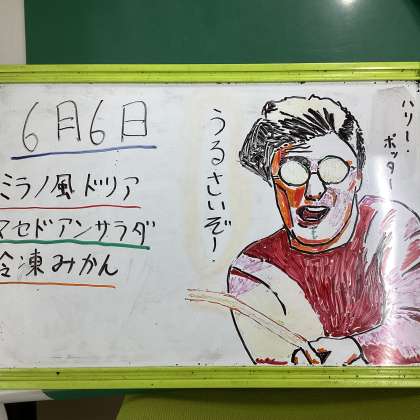 6月6日
ミラノ風ドリア
マセドアンサラダ
冷凍みかん
うるさいぞー!
ハリー・
ポッター